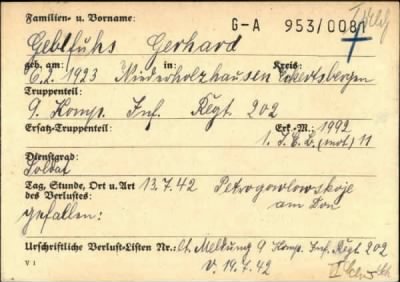 Familien- u. Vorname: G-A 953/008
Geblfuhs Gerhard
geb. am: in: Kreis:
6.2.1923 Niederholzhausen Eckertsbergen
Truppenteil:
9. Komp. Inf. Regt 202
Ersatz-Truppenteil: Erk.-M.: 1992
1. I.E.B. (mot.) 11
Dienstgrad:
Soldat
Tag, Stunde, Ort u. Art 13.7.42 Petrogowlowskoje
des Verlustes: am Don
gefallen:
Urschriftliche Verlust-Listen Nr.: lt. Meldung 9 Komp. Inf. Regt 202
V 1 v. 14.7.42